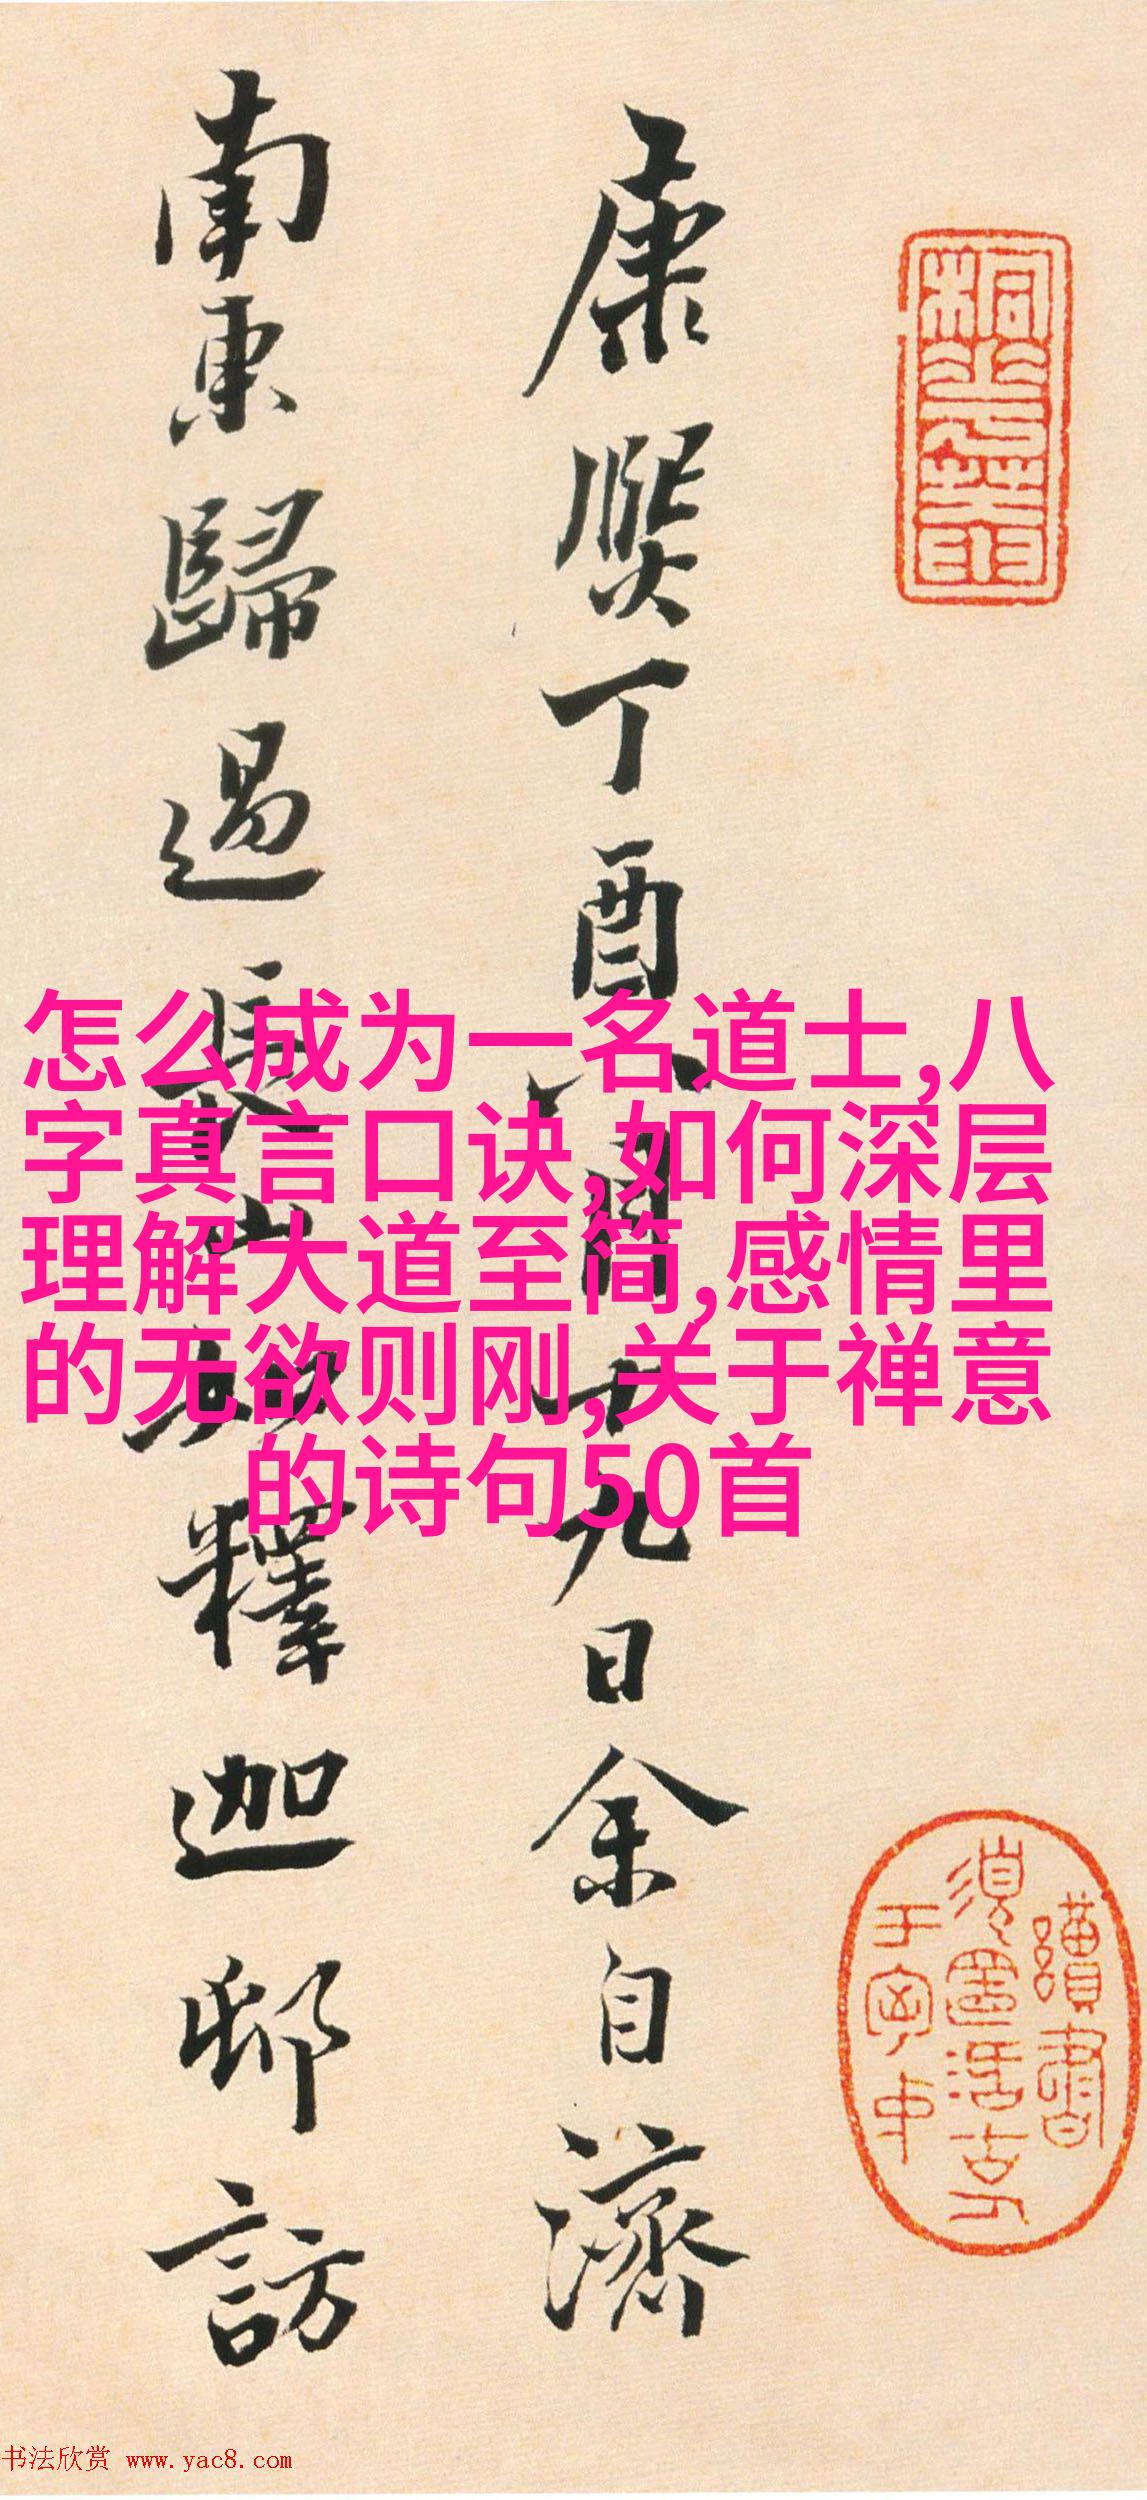 康熙丁酉八月十九日余自濟
南東歸過長山
釋迦邨訪
怎么成为一名道士,八
字真言口诀,如何深层
理解大道至简,感情里
的无欲则刚,关于禅意
的诗句50首
书法欣赏 www.yac8.com